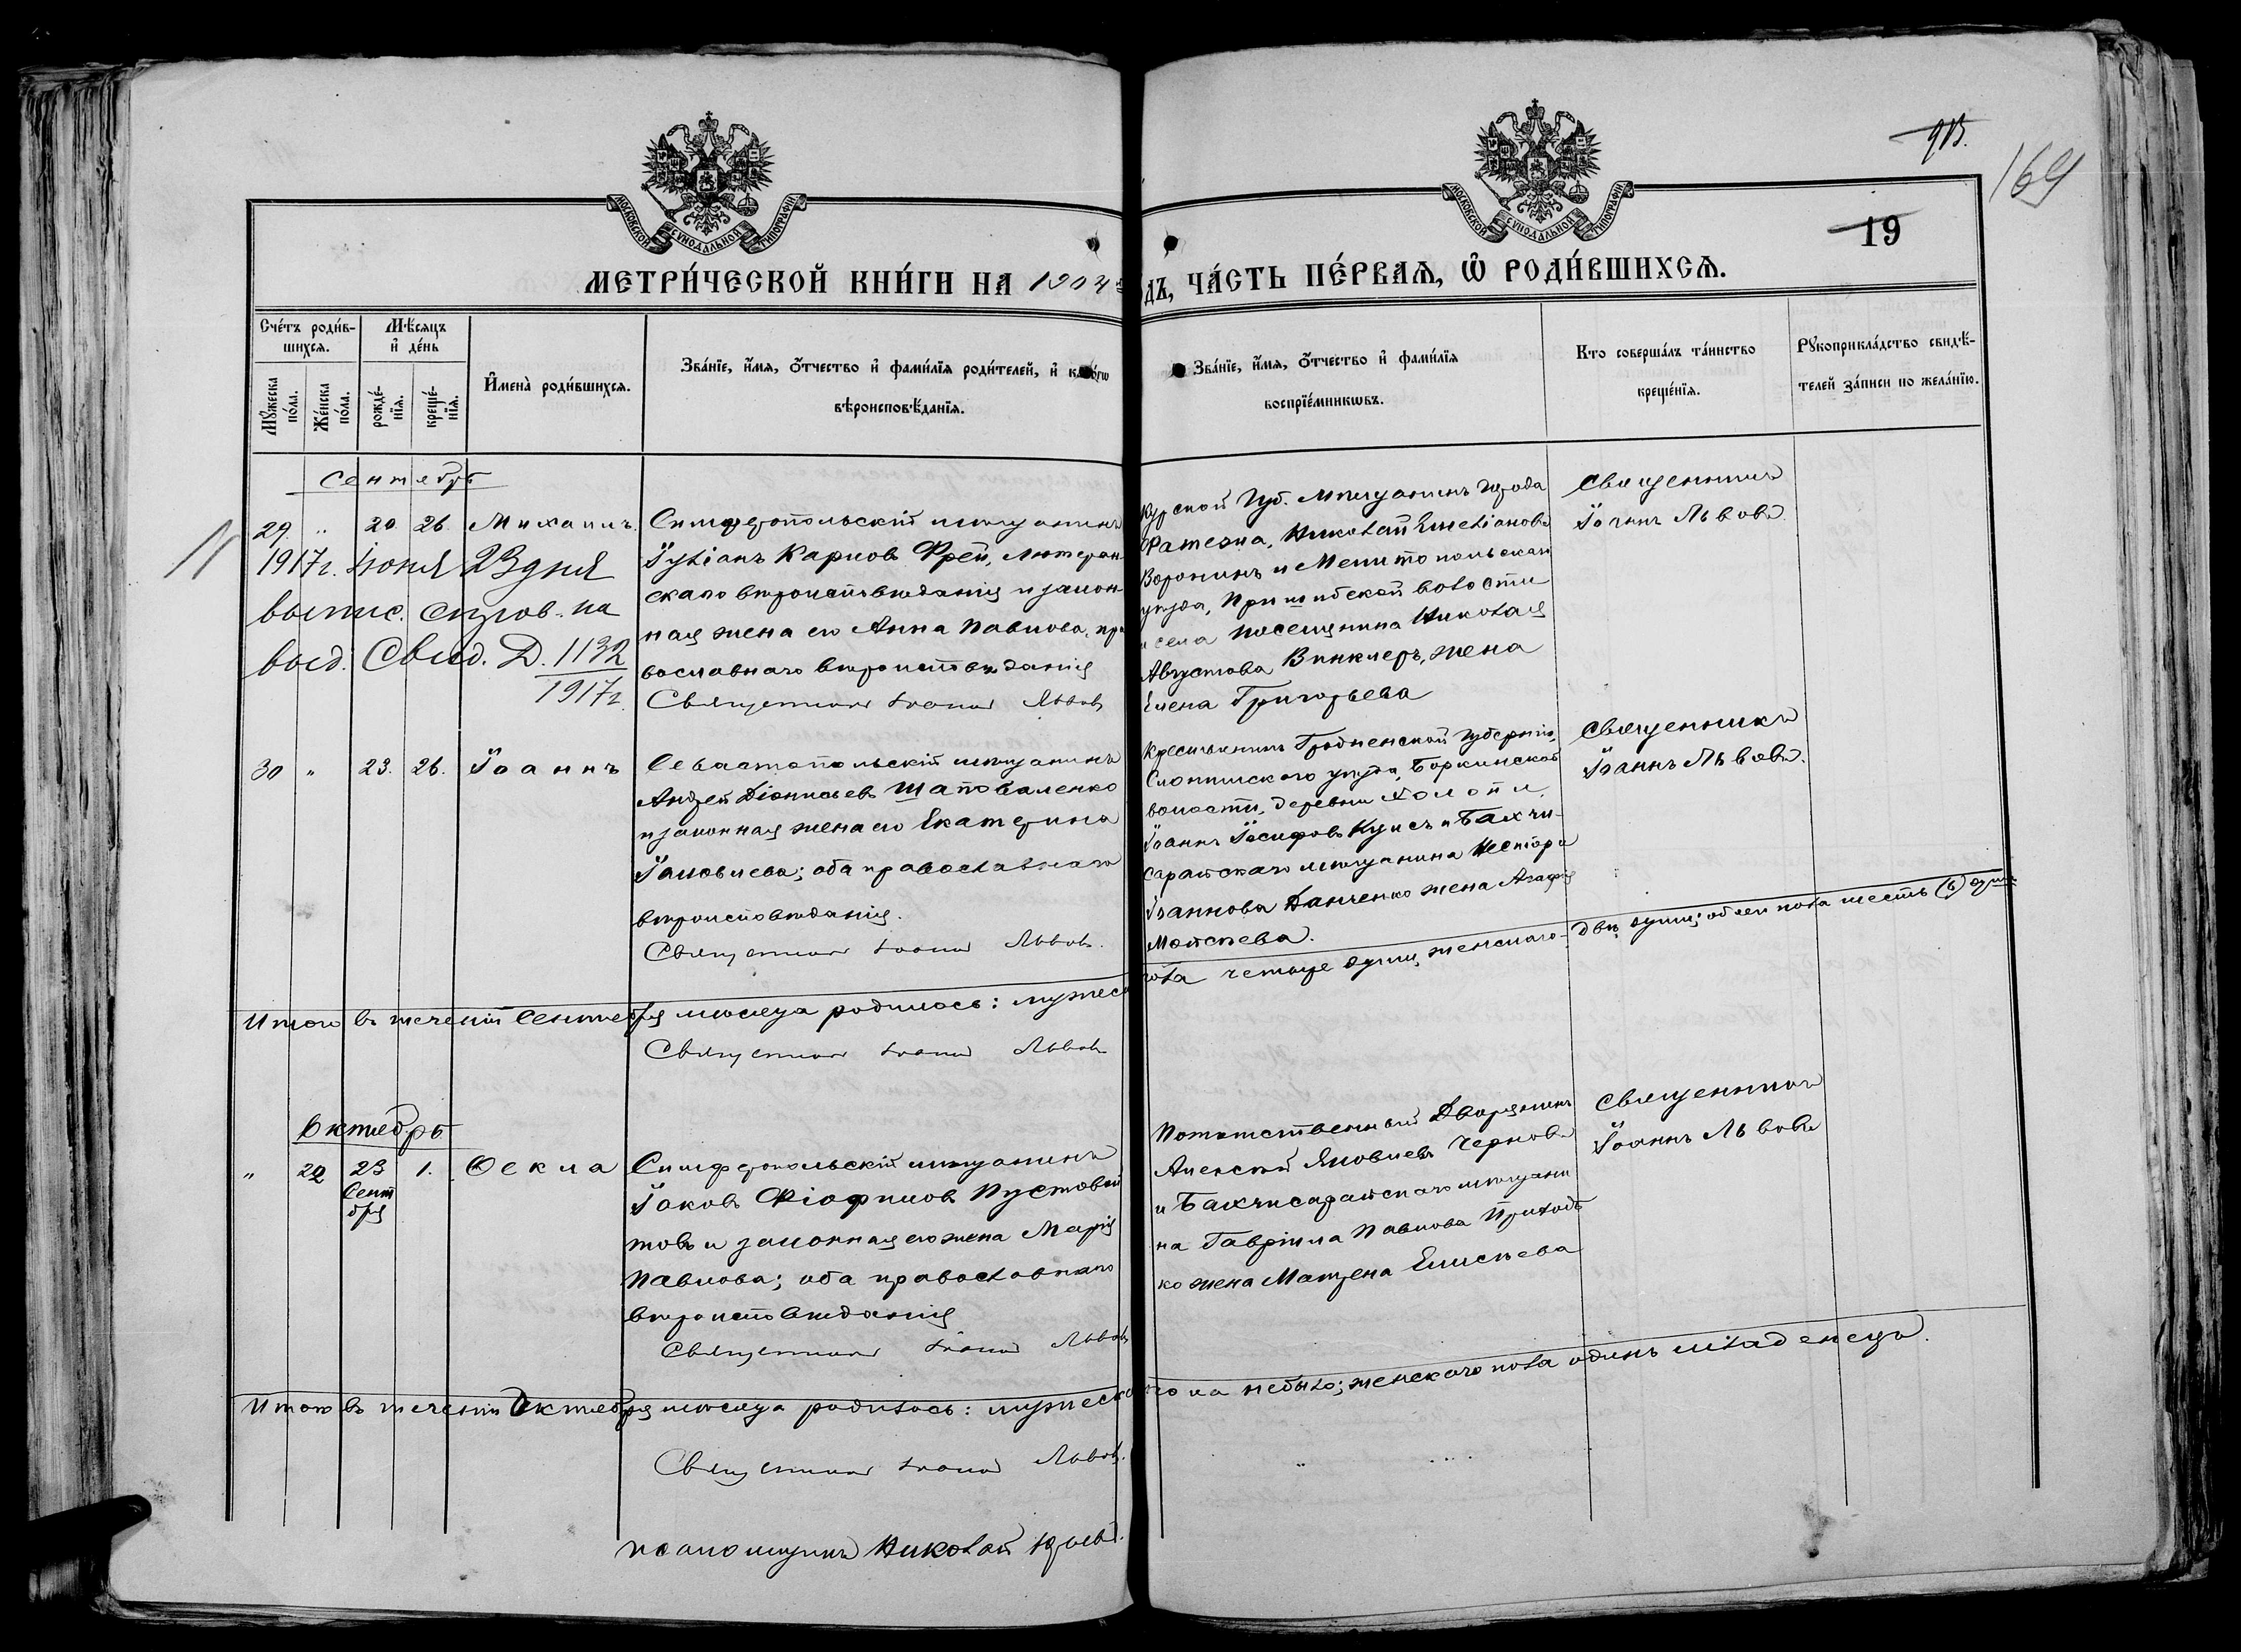 169
19
МОСКОВСКОЙ СѴНОДАЛЬНОЙ ТИПОГРАФІИ
МОСКОВСКОЙ СѴНОДАЛЬНОЙ ТИПОГРАФІИ
МЕТРИ́ЧЕСКОЙ КНИ́ГИ НА 1904 ДЪ, ЧА́СТЬ ПЕ́РВАѦ, Ѡ҆ РОДИ́ВШИХСѦ.
Сче́тъ роди́в-
шихсѧ.
Мѣ́сѧцъ
и҆ де́нь
Мꙋ́жеска
по́ла.
Же́нска
по́ла.
рожде́-
нїѧ.
креще́-
нїѧ.
И҆мена̀ роди́вшихсѧ.
Зва́нїе, и҆́мѧ, ѻ҆́тчество и҆ фами́лїѧ роди́телей, и҆ како́гѡ
вѣроисповѣ́данїѧ.
Зва́нїе, и҆́мѧ, ѻ҆́тчество и҆ фами́лїѧ
воспрїе́мникѡвъ.
Кто соверша́лъ та́инство
креще́нїѧ.
Рꙋкоприкла́дство свидѣ́-
телей за́писи по жела́нїю.
Сентябрь
29. " 20. 26. Михаилъ.
1917г. Іюня 23 дня
выпис. на
выд. Свид. Д. 1132
1917г.
Симферопольскій мѣщанинъ
Іуліанъ Карлов Фрей, лютеран-
скаго вѣроисповѣданія и закон-
ная жена его Анна Павлова, пра
вославнаго вѣроисповѣданія
Священникъ Іоаннъ Львовъ
Курской Губ. Мѣщанинъ города
Фатежа, Николай Емеліановъ
Воронинъ и Мелитопольскаго
уѣзда, Пришибской волости
и села поселянина Николая
Августова Винклеръ, жена
Елена Григорьева
Священникъ
Іоаннъ Львовъ.
30 " 23. 26. Іоаннъ
Севастопольскій мѣщанинъ
Андрей Діонисьевъ Шаповаленко
и законная жена его Екатерина
Іаковлева; оба православнаго
вѣроисповѣданія.
Священникъ Іоаннъ Львовъ.
Крестьянинъ Гродненской губерніи,
Слонимскаго уѣзда, Боркинской
волости, деревни
Іоаннъ Іосифовъ и Бахчи-
сарайскаго мѣщанина Нестора
Іоаннова Данченко жена Агафія
Моисеева.
Священникъ
Іоаннъ Львовъ.
Итого въ теченіи Сентября мѣсяца родилось: мужеска пола четыре души, женскаго - двѣ души; обоего пола шесть (6) душъ
Священникъ Іоаннъ Львовъ
Октябрь
" 22 23 1. Ѳекла
Сент
бря
Симферопольскій мѣщанинъ
Іаковъ Ѳіофиловъ Пустовой
товъ и законная его жена Марія
Павлова; оба православнаго
вѣроисповѣданія
Священникъ Іоаннъ Львовъ
Потомственный Дворянинъ
Алексѣй Яковлевъ Черновъ
и Бахчисарайскаго мѣщани
на Гавріила Павлова Приходь
ко жена Матрена Елисѣева
Священникъ
Іоаннъ Львовъ
Итого въ теченіи Октября мѣсяца родилось: мужескаго па не было; женскаго пола одинъ младенецъ.
Священникъ Іоаннъ Львовъ.
псаломщикъ Николай